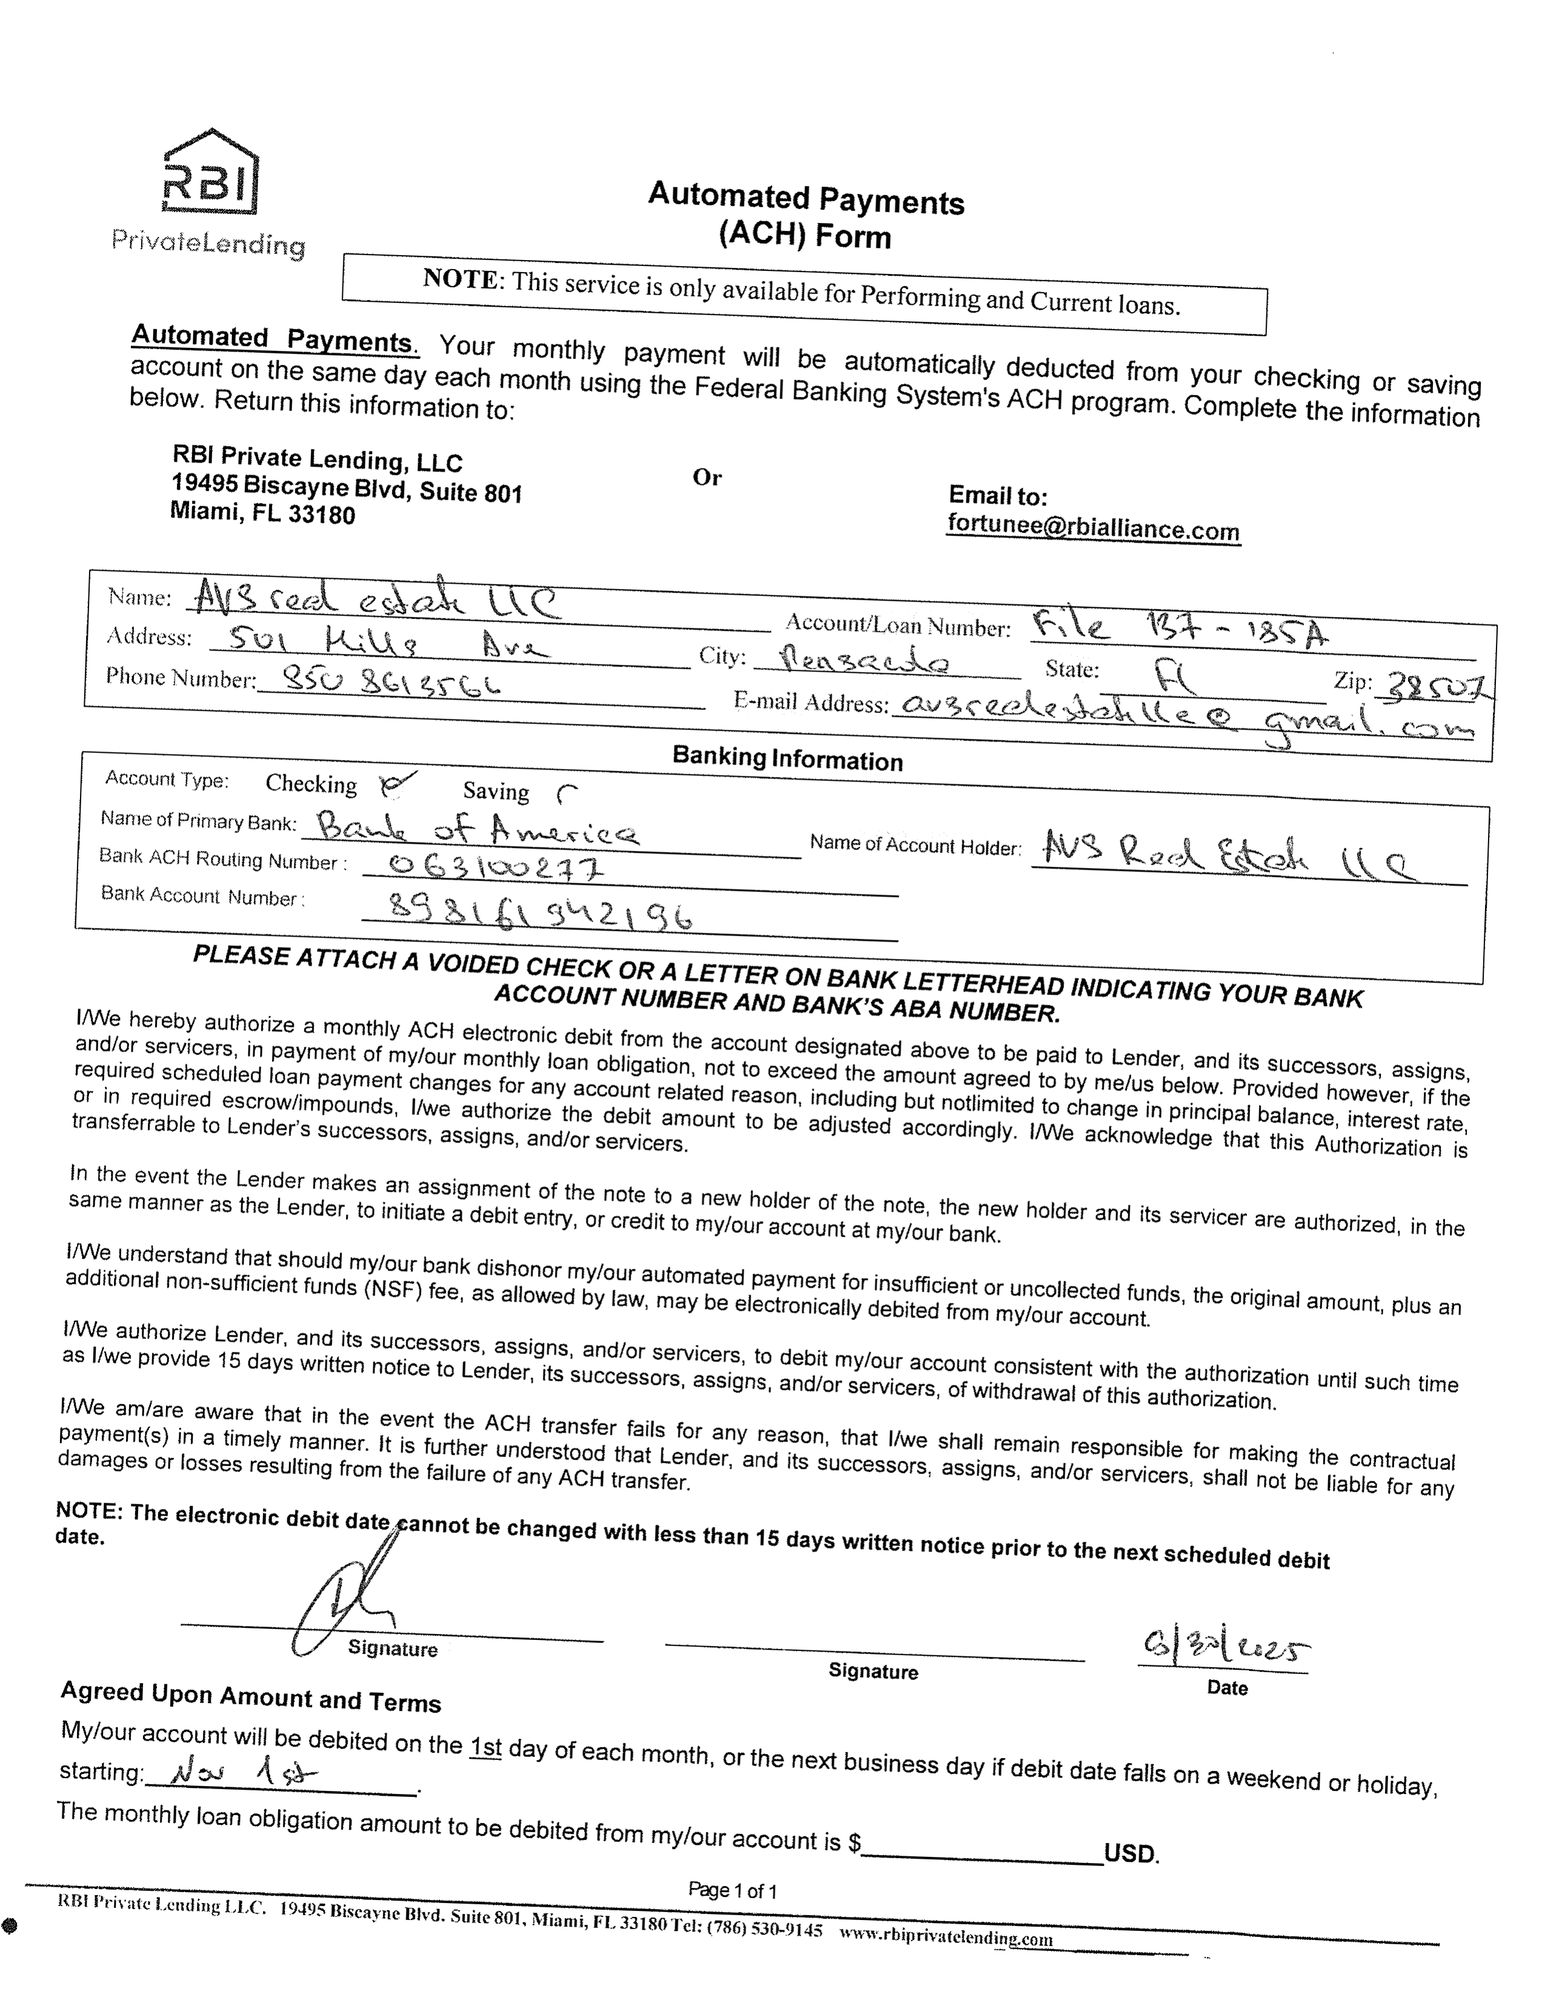 RBI
PrivateLending
Automated Payments
(ACH) Form
NOTE: This service is only available for Performing and Current loans.
Automated Payments. Your monthly payment will be automatically deducted from your checking or saving
account on the same day each month using the Federal Banking System's ACH program. Complete the information
below. Return this information to:
RBI Private Lending, LLC
19495 Biscayne Blvd, Suite 801
Miami, FL 33180
Or
Email to:
fortunee@rbialliance.com
Name: AVS real estate LLC Account/Loan Number: File 137-185A
Address: 501 Mills Ave City: Pensacola State: Fl Zip: 32507
Phone Number: 850 8613566 E-mail Address: avsrealestatellc@gmail.com
Banking Information
Account Type: Checking Saving
Name of Primary Bank: Bank of America Name of Account Holder: AVS Real Estate LLC
Bank ACH Routing Number: 063100277
Bank Account Number: 898161942196
PLEASE ATTACH A VOIDED CHECK OR A LETTER ON BANK LETTERHEAD INDICATING YOUR BANK
ACCOUNT NUMBER AND BANK'S ABA NUMBER.
I/We hereby authorize a monthly ACH electronic debit from the account designated above to be paid to Lender, and its successors, assigns,
and/or servicers, in payment of my/our monthly loan obligation, not to exceed the amount agreed to by me/us below. Provided however, if the
required scheduled loan payment changes for any account related reason, including but notlimited to change in principal balance, interest rate,
or in required escrow/impounds, I/we authorize the debit amount to be adjusted accordingly. I/We acknowledge that this Authorization is
transferrable to Lender's successors, assigns, and/or servicers.
In the event the Lender makes an assignment of the note to a new holder of the note, the new holder and its servicer are authorized, in the
same manner as the Lender, to initiate a debit entry, or credit to my/our account at my/our bank.
I/We understand that should my/our bank dishonor my/our automated payment for insufficient or uncollected funds, the original amount, plus an
additional non-sufficient funds (NSF) fee, as allowed by law, may be electronically debited from my/our account.
I/We authorize Lender, and its successors, assigns, and/or servicers, to debit my/our account consistent with the authorization until such time
as I/we provide 15 days written notice to Lender, its successors, assigns, and/or servicers, of withdrawal of this authorization.
I/We am/are aware that in the event the ACH transfer fails for any reason, that I/we shall remain responsible for making the contractual
payment(s) in a timely manner. It is further understood that Lender, and its successors, assigns, and/or servicers, shall not be liable for any
damages or losses resulting from the failure of any ACH transfer.
NOTE: The electronic debit date cannot be changed with less than 15 days written notice prior to the next scheduled debit
date.
Signature
Signature
Date
Agreed Upon Amount and Terms
My/our account will be debited on the 1st day of each month, or the next business day if debit date falls on a weekend or holiday,
starting: Nov 1st.
The monthly loan obligation amount to be debited from my/our account is $ USD.
Page 1 of 1
RBI Private Lending LLC. 19495 Biscayne Blvd. Suite 801, Miami, FL 33180 Tel: (786) 530-9145 www.rbiprivatelending.com